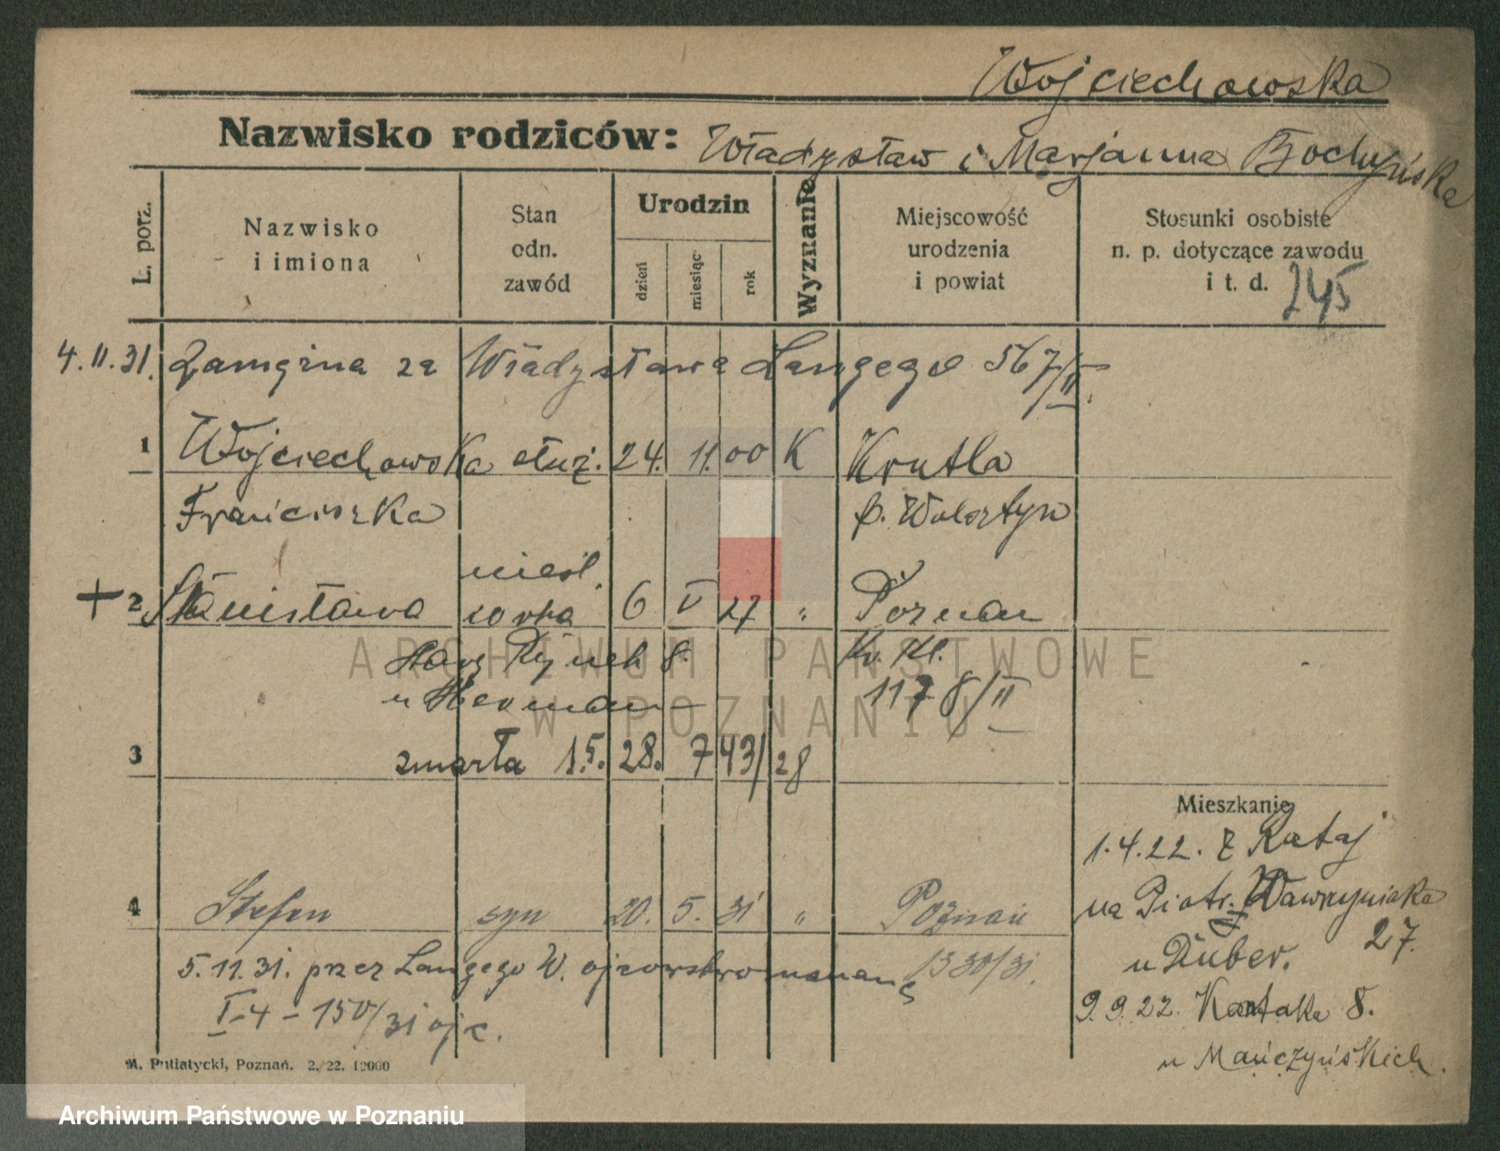 Wojciechowska
Nazwisko rodziców: Władysław i Marjanna Bochyńska
L. porz.
Nazwisko i imiona
Stan odn. zawód
Urodzin
dzień
miesiąc
rok
Wyznanie
Miejscowość urodzenia i powiat
Stosunki osobiste n. p. dotyczące zawodu i t. d.
245
4.11.31. Zamężna za Władysława Langego 567/II.
1 Wojciechowska służ. 24. 11. 00 K Krutla
Franciszka p. Wolsztyn
nieśl.
+ 2 Stanisława córka 6 V 27 " Poznań
Stary Rynek 8. Kr. Kl.
u Herman 1178/II
3 zmarła 15. 28. 743/28
Mieszkanie
1.4.22. z Rataj
na Piotr. Wawrzyniaka
27.
u Duber.
9.9.22. Kantaka 8.
u Mańczyńskich.
4 Stefan syn 20. 5. 31 " Poznań
5.11.31. przez Langego W. ojcowstwo uznane 1330/31.
I-4-150/31 ojc.
M. Putiatycki, Poznań. 2. 22. 10000
ARCHIWUM PAŃSTWOWE
W POZNANIU
Archiwum Państwowe w Poznaniu